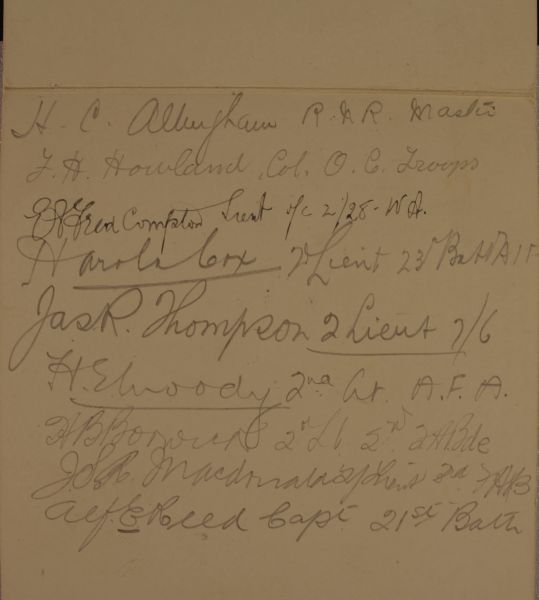 H. C. Allingham R.N.R. Master
F. H. Howland, Col. O. C. Troops
Fred Compton Lieut o/c 2/28 - W A.
Harold Cox 2nd Lieut 23rd Battn A I F
Jas R. Thompson 2 Lieut 7/6
H. Elwoody 2nd Lt. A. F. A.
2nd Lt 2nd FABde
Macdonald 2nd FAB
Alf. E Reed Capt 21st Battn